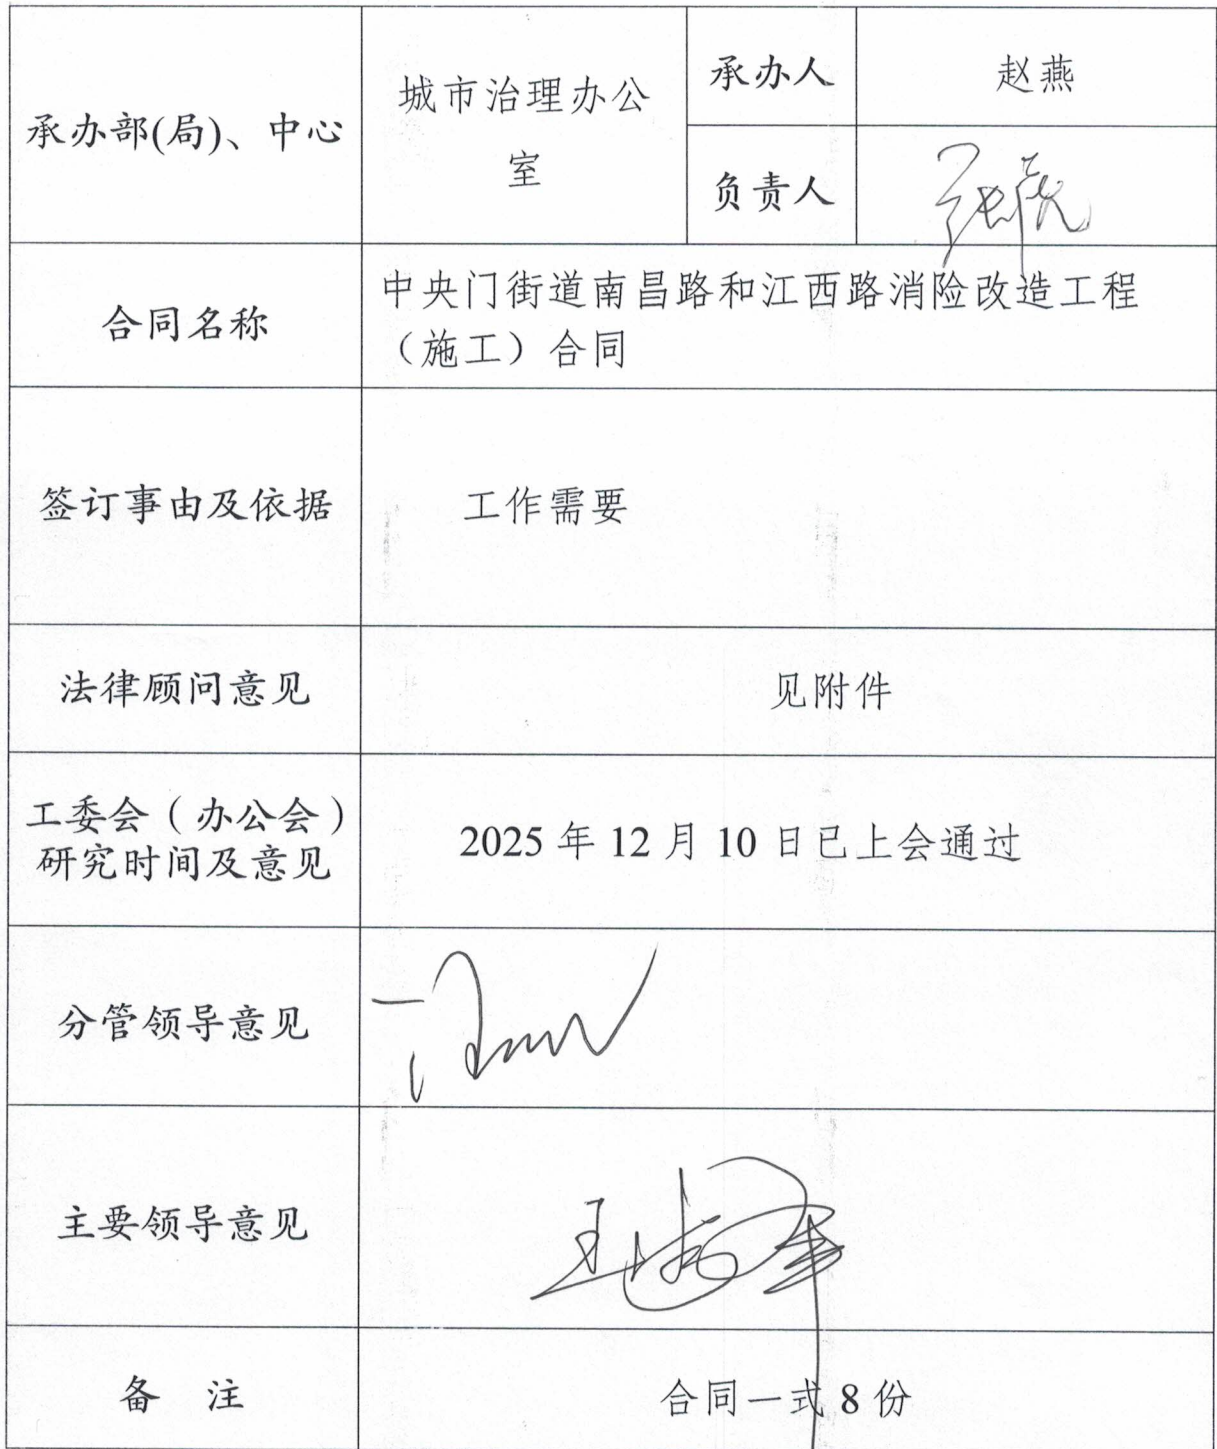 承办部(局)、中心
城市治理办公
室
承办人
赵燕
负责人
合同名称
中央门街道南昌路和江西路消险改造工程
（施工）合同
签订事由及依据
工作需要
法律顾问意见
见附件
工委会（办公会）
研究时间及意见
2025 年 12 月 10 日已上会通过
分管领导意见
主要领导意见
备 注
合同一式 8 份